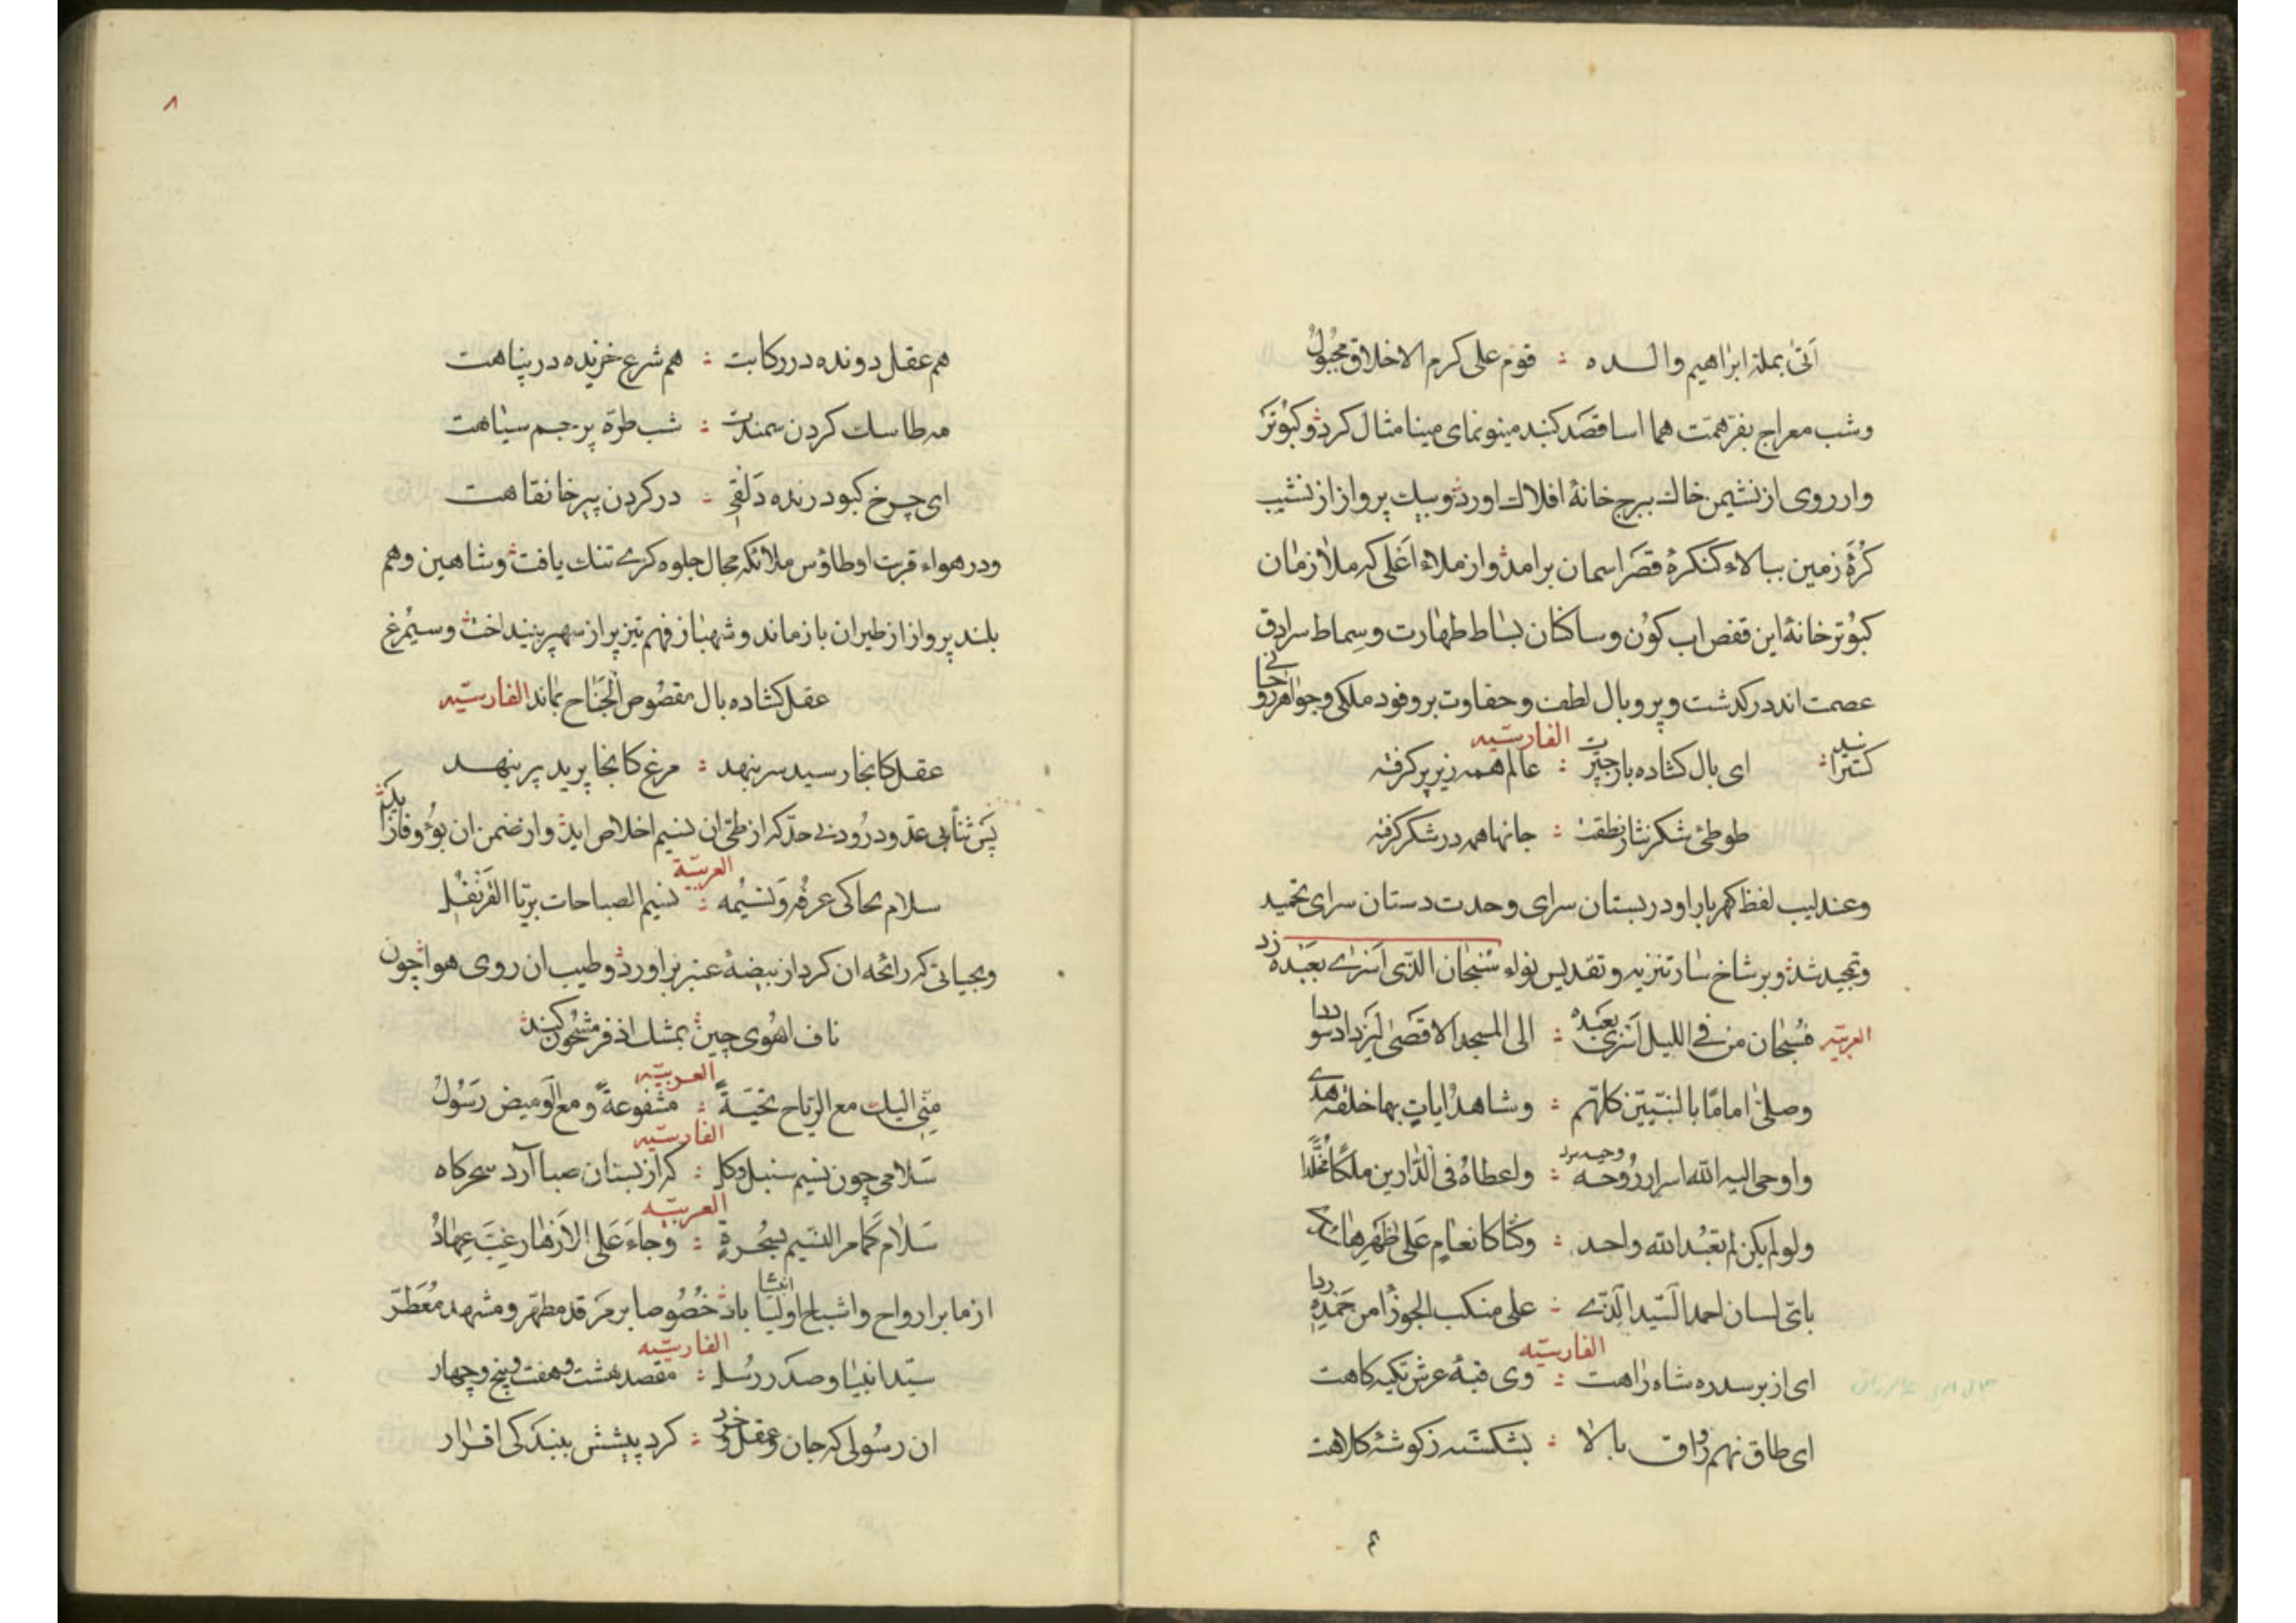 اتی بملة ابراهیم والده : قوم علی کرم الاخلاق مجبول
وشب معراج بفر همت هما اسا قصد کنبد مینونمای مینا مثال کرد وکبوتر
وار روی از نشیمن خاك ببرج خانهٔ افلاك اورد وبیك پرواز از نشیب
کرهٔ زمین ببالاء کنکرهٔ قصر اسمان برامد واز ملاء اعلی که ملازمان
کبوتر خانهٔ این قفص اب کون وساکنان بساط طهارت وسماط سرادق
عصمت اند در کذشت وپر وبال لطف وحفاوت بر وفود ملکی وجواهر روحانی
کسترانید : ای بال کشاده باز چترت : عالم همه زیر پر کرفته
الفارسیه
طوطئ شکر نثار نطقت : جانها همه در شکر کرفته
وعندلیب لفظ کهربار او در بستان سرای وحدت دستان سرای تحمید
وتمجید شد وبر شاخ سار تنزیه وتقدیس نواء سبحان الذی اسری بعبده زد
العربیه فسبحان من فی اللیل اسری بعبده : الی المسجد الاقصی لیزداد سوددا
وصلی اماما بالنبیین کلهم : وشاهد ایات بها خلقه هدی
واوحی الیه الله اسرار روحه : واعطاه فی الدارین ملکا مخلدا
ولو لم یکن لم تعبد الله واحد : وکنا کانعام علی ظهرها
بای لسان احمد السید الذی : علی منکب الجوزا من حمده ردا
الفارسیه
ای از بر سدره شاه راهت : وی قبهٔ عرش تکیه کاهت
ای طاق نهم رواق بالا : بشکسته ز کوشهٔ کلاهت
٤
٨
هم عقل دونده در رکابت : هم شرع خزیده در پناهت
مه طاسك کردن سمندت : شب طرهٔ پرچم سیاهت
ای چرخ کبود ژنده دلقی : در کردن پیر خانقاهت
ودر هواء قربت او طاؤس ملائکه مجال جلوه کری تنك یافت وشاهین وهم
بلند پرواز از طیران باز ماند وشهباز فهم تیز پر از سهم پر بینداخت وسیمرغ
عقل کشاده بال مقصوص الجناح بماند الفارسیه
عقل کانجا رسید سر بنهد : مرغ کانجا پرید پر بنهد
پس ثنأ بی عد ودرود بی حد که از طی ان نسیم اخلاص اید واز ضمن ان بوء وفا زاید
العربیة
سلام یحاکی عرفه ونسیمه : نسیم الصباحات بریا القرنفل
وبحیاتی که رائحه ان کرد از بیضهٔ عنبر براورد وطیب ان روی هوا چون
ناف اهوی چین بمشك اذفر مشحون کند
العربیه
منی الیك مع الریاح تحیة : مشفوعة ومع الومیض رسول
الفارسیه
سلامی چون نسیم سنبل وکل : که از بستان صبا آرد سحرکاه
العربیه
سلام کما مر النسیم بسحرة : وجاء علی الازهار غب عهاد
از ما بر ارواح واشباح انبیا اولیا باد خصوصا بر مرقد مطهر ومشهد معطر
الفارسیه
سید انبیا وصدر رسل : مقصد هشت وهفت وپنج وچهار
ان رسولی که جان وعقل وخرد : کرد پیشش ببندکی اقرار